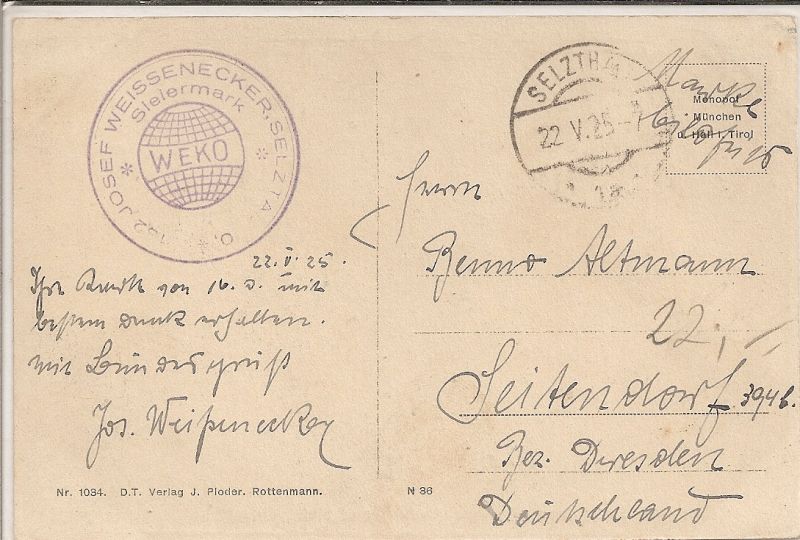 JOSEF WEISSENECKER, SELZTAL
Steiermark
WEKO
22. V. 25.
Ihre Karte von 16. d. mit
bestem Dank erhalten.
Mit Bundesgruß
Jos. Weißenecker
Nr. 1034. D.T. Verlag J. Ploder. Rottenmann.
N 36
SELZTHAL
22 V. 25
Marke
Monopol
München
u. Hall i. Tirol
Herrn
Benno Altmann
22,-
Seitendorf 394b.
Bez. Dresden
Deutschland